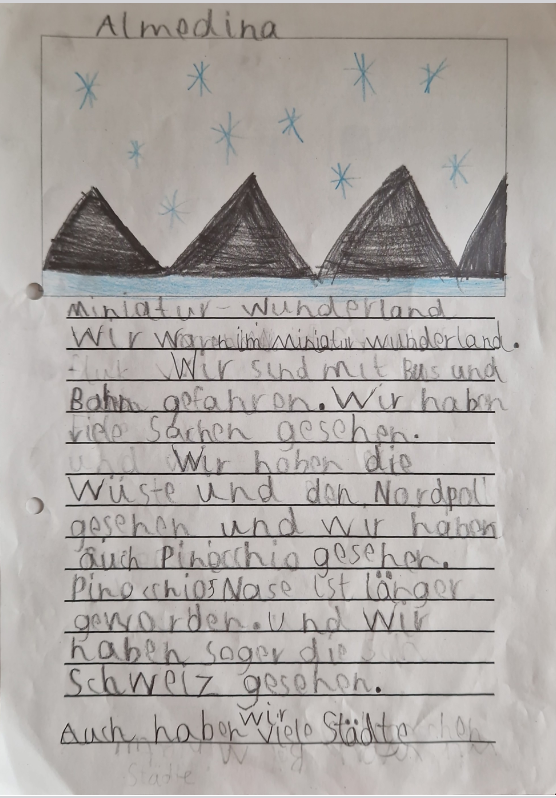 Almedina
Miniatur-Wunderland
Wir waren im Miniatur wunderland.
Wir sind mit Bus und
Bahn gefahren. Wir haben
viele Sachen gesehen.
und Wir haben die
Wüste und den Nordpol
gesehen und wir haben
auch Pinocchio gesehen.
Pinocchios Nase ist länger
geworden. und Wir
haben sogar die
Schweiz gesehen.
Auch haben wir viele Städte
Städte